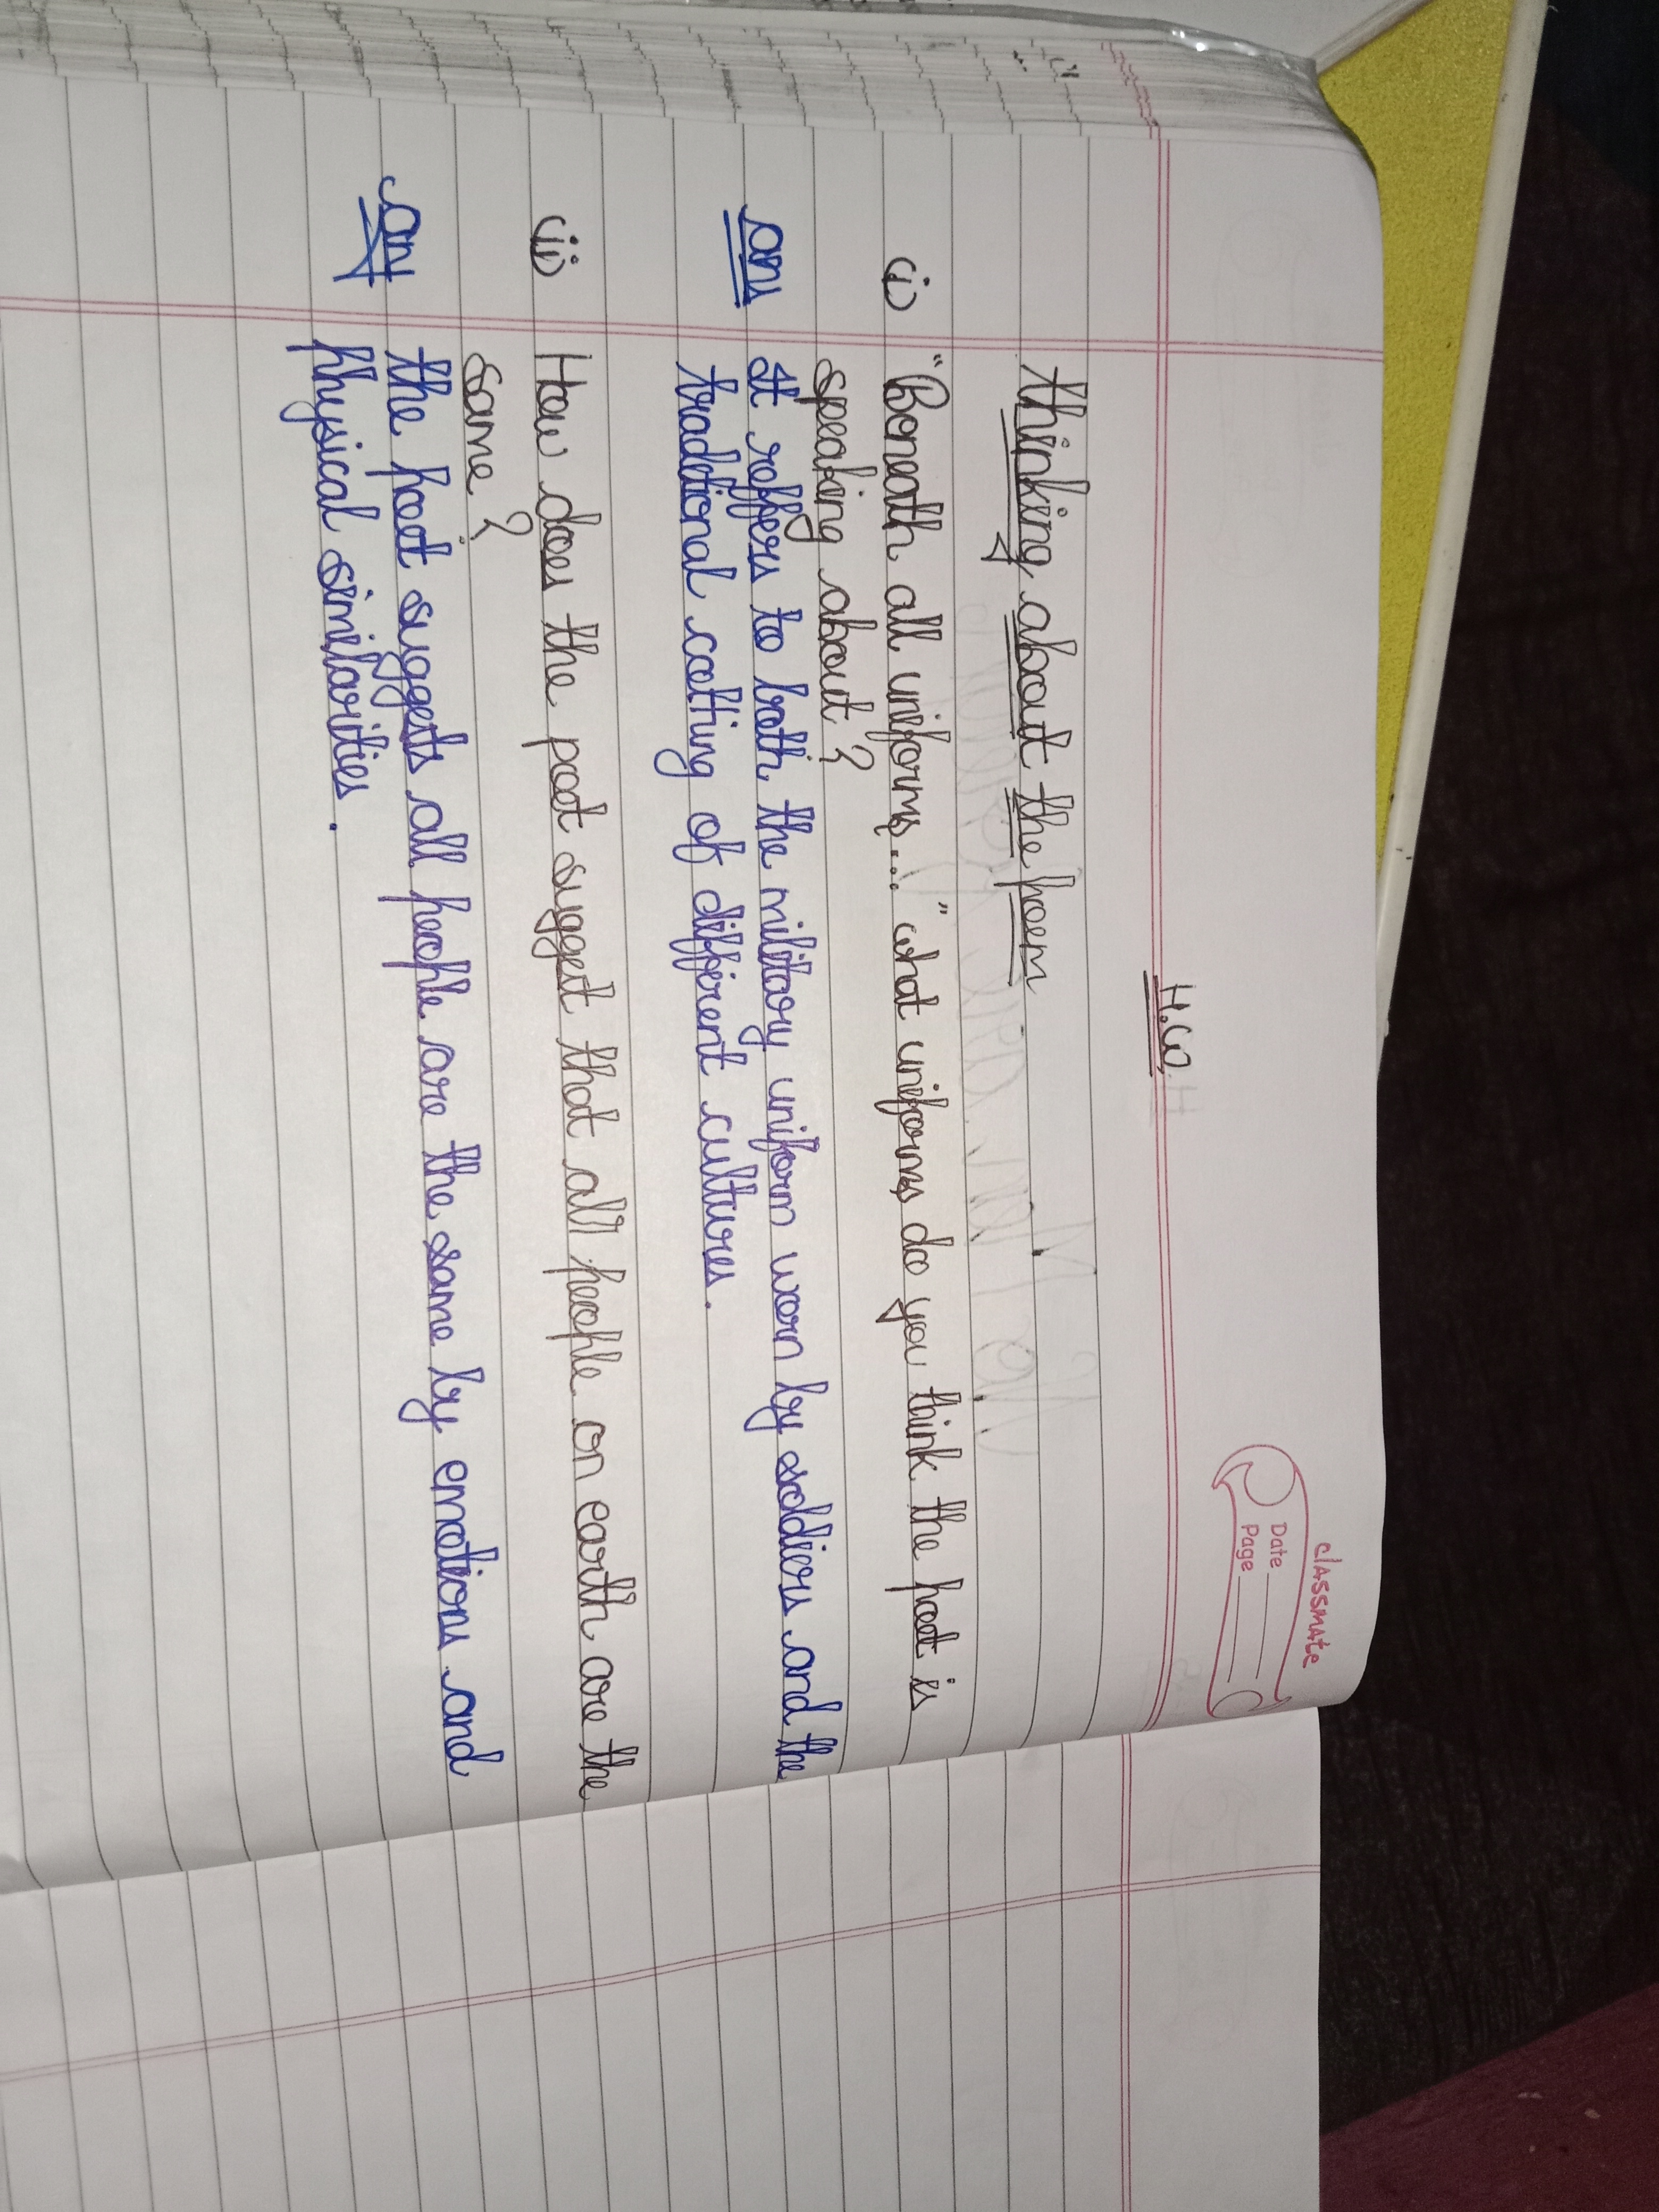 classmate
Date
Page
H.W
thinking about the poem
(i) "Beneath all uniforms..." what uniforms do you think the poet is
speaking about?
ans It reffers to both the military uniform worn by soldiers and the
traditional cothing of different cultures.
(ii) How does the poet suggest that all people on earth are the
same?
ans the poet suggests all people are the same by emotions and
physical similarities.